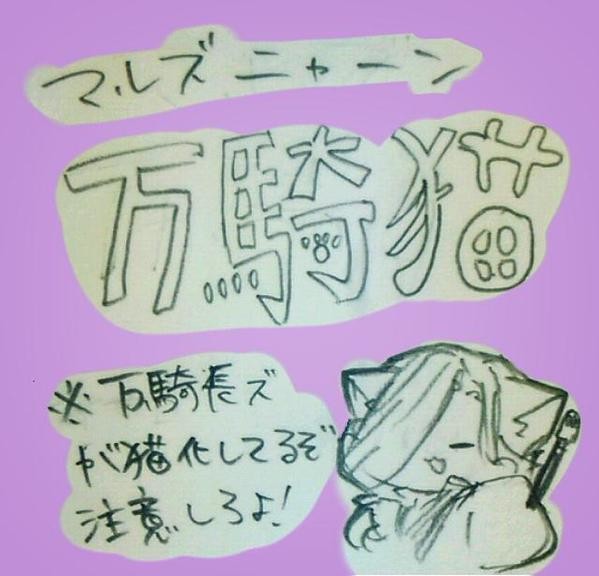 マルズニャーン
万騎猫
※万騎長ズ
が猫化してるぞ
注意しろよ!